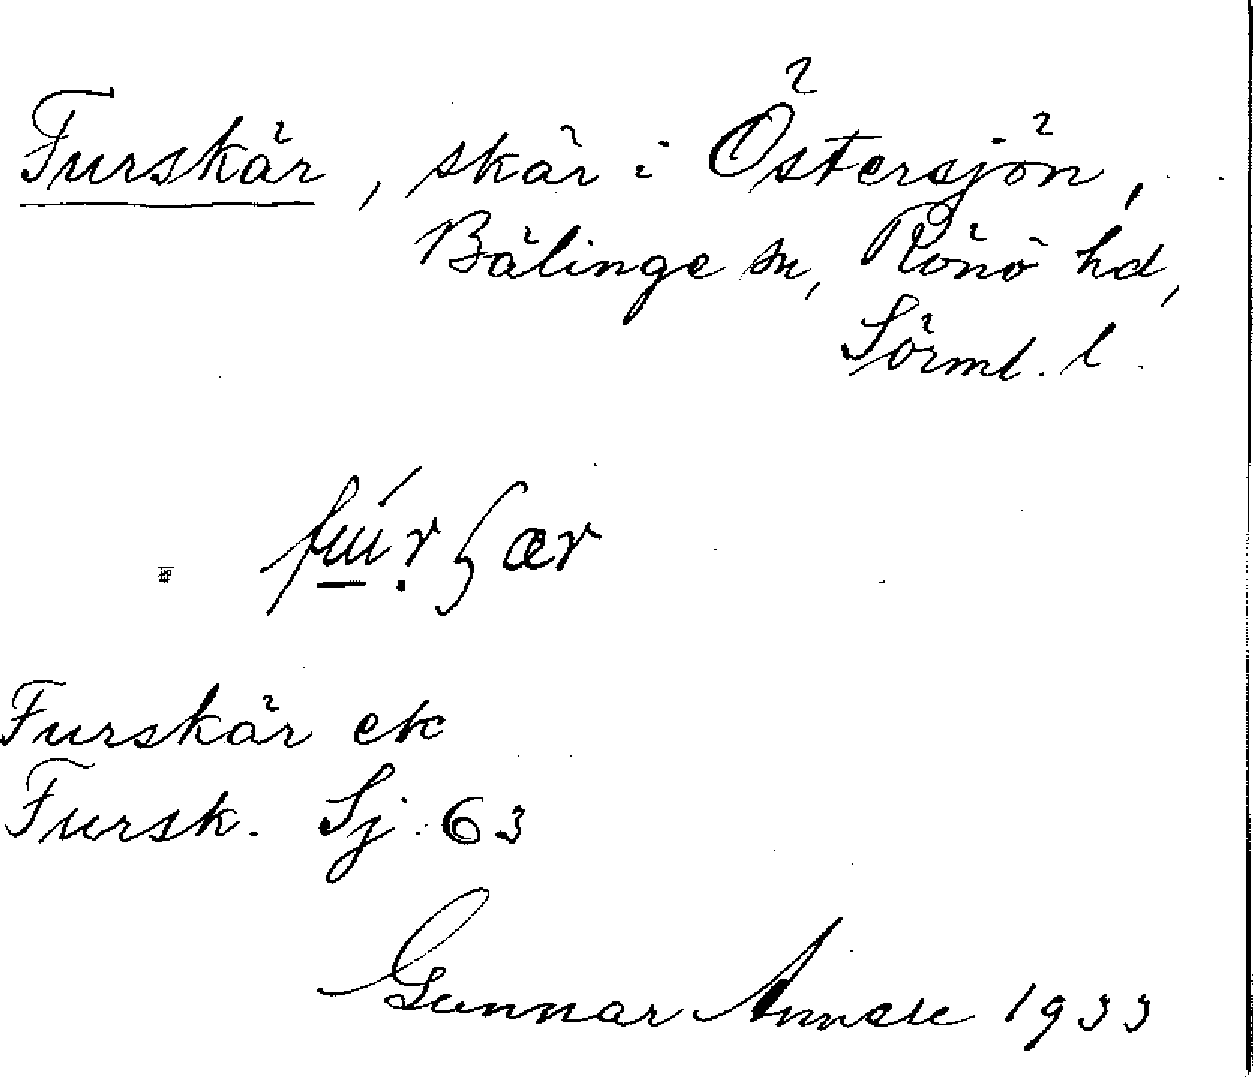 Furskär, skär i Östersjön,
Bälinge sn, Rönö hd,
Sörml. l.
Furskär ek
Fursk. Sj. 63
Gunnar 1933